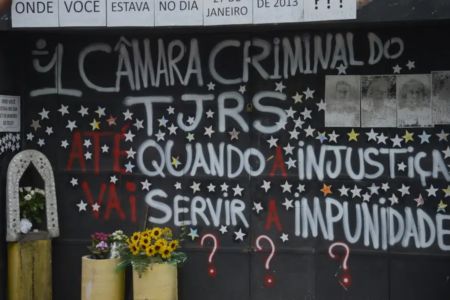 ONDE VOCÊ ESTAVA NO DIA 27 DE JANEIRO DE 2013 ???
1 CÂMARA CRIMINAL DO
TJRS
ATÉ QUANDO A INJUSTIÇA
VAI SERVIR A IMPUNIDADE
? ? ?